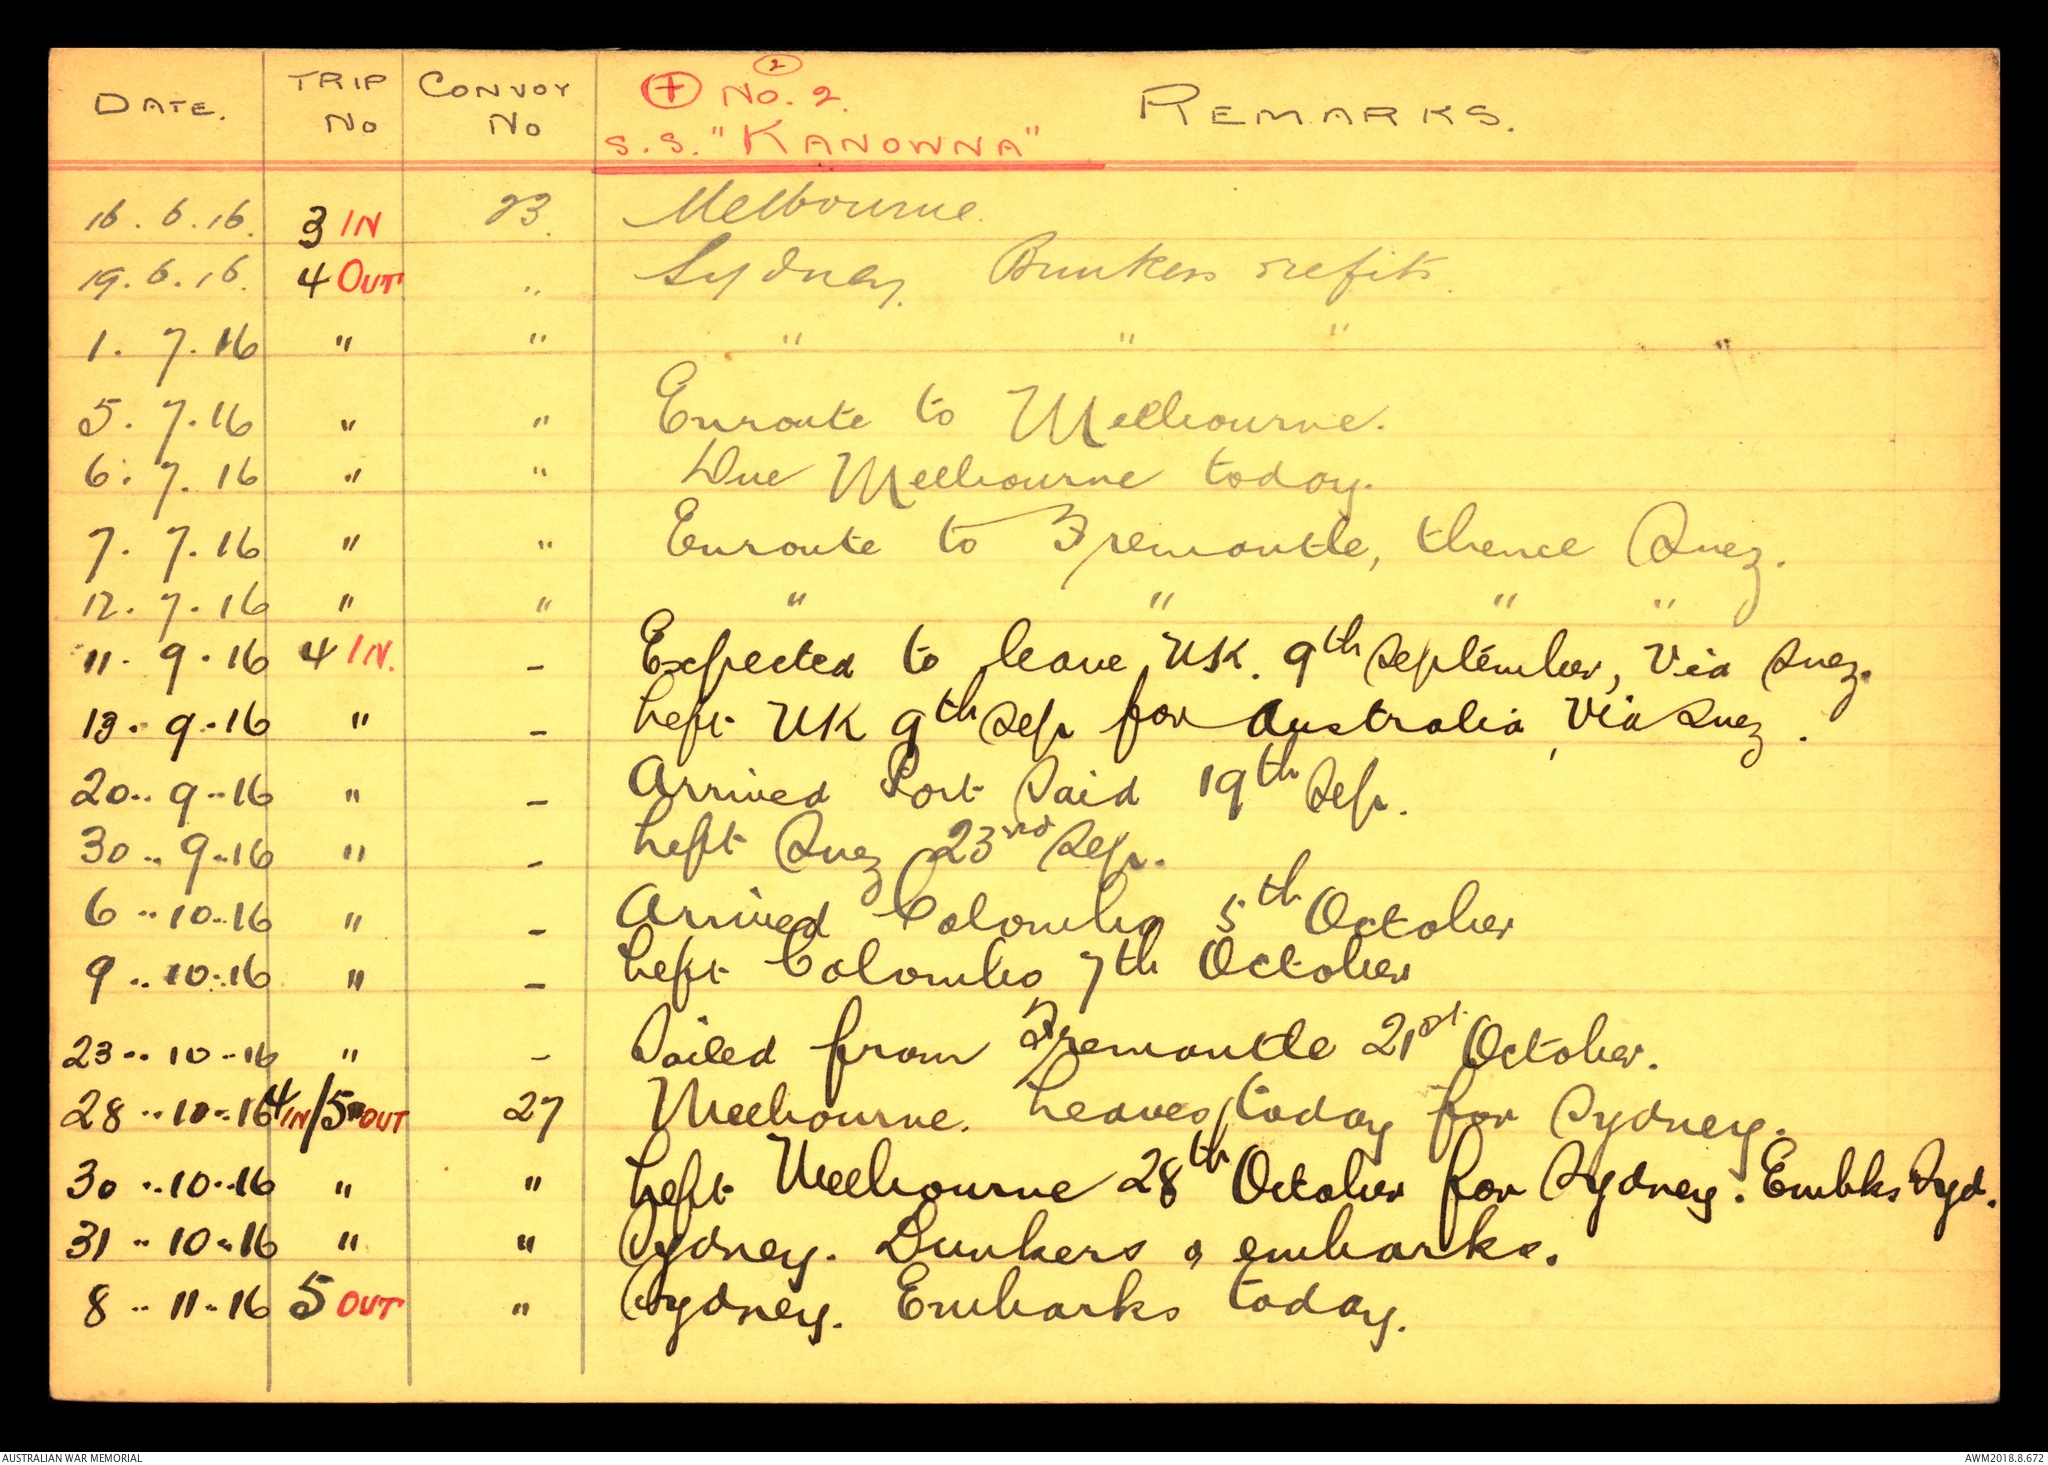 DATE. TRIP No CONVOY No + No. 2. 2 REMARKS.
S.S. "KANOWNA"
16.6.16. 3 IN 23. Melbourne.
19.6.16. 4 OUT " Sydney. Bunkers refits.
1.7.16 " " " " " "
5.7.16 " " Enroute to Melbourne.
6.7.16 " " Due Melbourne today.
7.7.16 " " Enroute to Fremantle, thence Suez.
12.7.16 " " " " " "
11.9.16 4 IN. - Expected to leave UK. 9th September, Via Suez.
13.9.16 " - Left UK 9th Sep for Australia, Via Suez.
20..9..16 " - Arrived Port Said 19th Sep.
30..9..16 " - Left Suez 23rd Sep.
6..10..16 " - Arrived Colombo 5th October
9..10..16 " - Left Colombo 7th October
23..10..16 " - Sailed from Fremantle 21st October.
28..10..16 4 IN/5 OUT 27 Melbourne. Leaves today for Sydney.
30..10..16 " " Left Melbourne 28th October for Sydney. Embks Syd.
31..10..16 " " Sydney. Bunkers & embarks.
8..11..16 5 OUT " Sydney. Embarks today.
AUSTRALIAN WAR MEMORIAL AWM2018.8.672